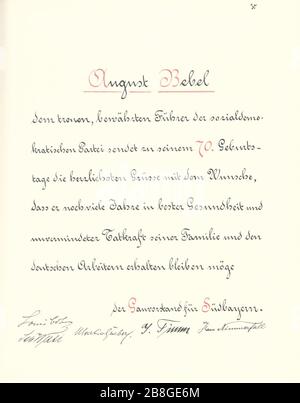 August Bebel
dem treuen, bewährten Führer der sozialdemo-
kratischen Partei sendet zu seinem 70. Geburts-
tage die herzlichsten Grüsse mit dem Wunsche,
dass er noch viele Jahre in bester Gesundheit und
unverminderter Tatkraft seiner Familie und den
deutschen Arbeitern erhalten bleiben möge
der Gauvorstand für Südbayern.
J. Timm
alamy
Image ID: 2B8GE6M
www.alamy.com